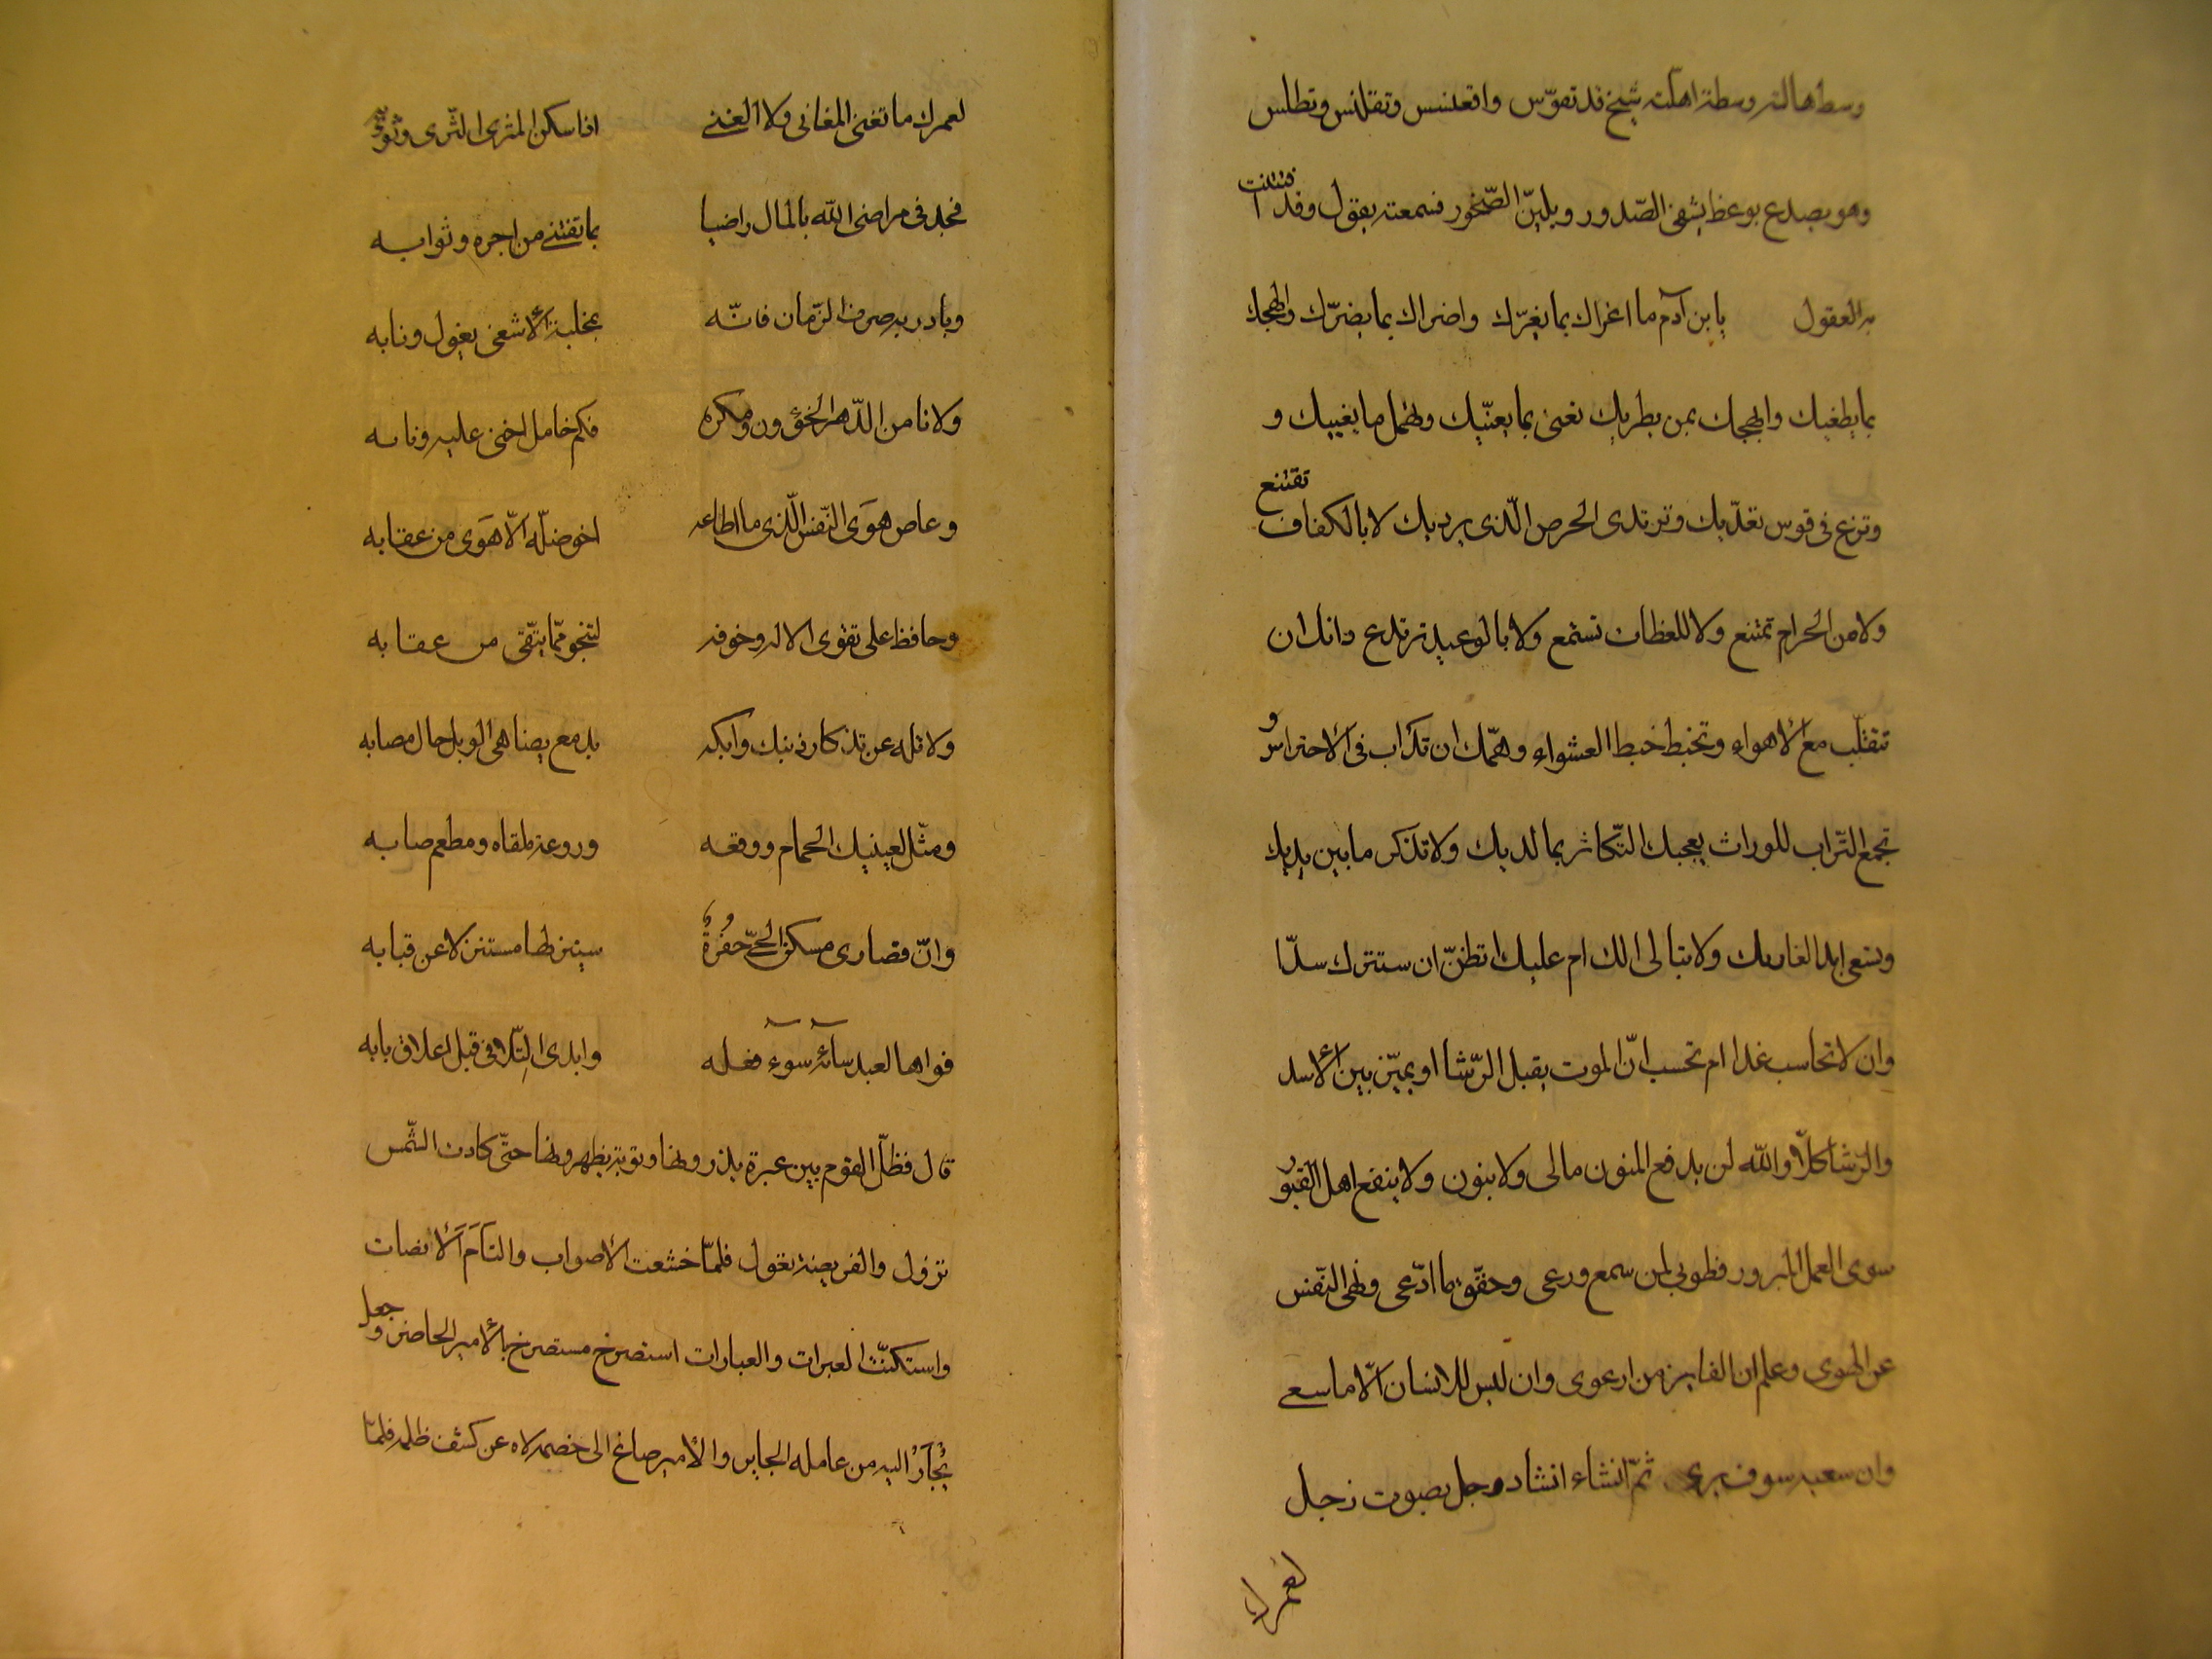 وسط هالته وسطة اهلته شيخ قد تقوّس واقعنسس وتقلنس وتطلس
وهو يصدع بوعظ يشفى الصّدور ويلينّ الصّخور فسمعته يقول وقد افتتنت
به العقول يا بن آدم ما اغراك بما يغرّك واضراك بما يضرّك والهجك
بما يطغيك وابهجك بمن يطريك تعنى بما يعنّيك وتهمل ما يغييك و
وتنزع فى قوس تعدّيك وترتدى الحرص الّذى يرديك لا بالكفاف تقتنع
ولا من الحرام تمتنع ولا للعظات تستمع ولا بالوعيد ترتدع دابك ان
تتقلّب مع الاهواء وتخبط خبط العشواء وهمّك ان تداب فى الاحتراس و
تجمع التّراب للوراث يعجبك التّكاثر بما لديك ولا تذكر ما بين يديك
وتسعى ابدا لغاريك ولا تبالى الك ام عليك اتظنّ ان ستترك سدّا
وان لا تحاسب غدا ام تحسب انّ الموت يقبل الرّشا او يميّز بين الاسد
والرّشا كلّا والله لن يدفع المنون مالى ولا بنون ولا ينفع اهل القبور
سوى العمل المبرور فطوبى لمن سمع ورعى وحقّق ما ادّعى ونهى النّفس
عن الهوى وعلم ان الفايز من ارعوى وان ليس للانسان الّا ما سعى
وان سعيه سوف يرى ثمّ انشاء انشاد وجل بصوت زجل
لعمرك
لعمرك ما تغنى المغانى ولا الغنى اذا سكن المثرى الثّرى وثوى به
فجد فى مراضى الله بالمال راضيا بما تقتنى من اجره وثوابه
وبادر به صرف الزّمان فانّه بمخلبه الاشغى يغول ونابه
ولا تامن الدّهر الخؤون ومكره فكم خامل اخنى عليه ونابه
وعاص هوَى النّفس الّذى ما اطاعه اخو ضلّه الّا هَوَى من عقابه
وحافظ على تقوى الاله وخوفه لتنجو ممّا يتّقى من عقابه
ولا تله عن تذكار ذنبك وابكه بدمع يضاهى الوبل حال مصابه
ومثّل لعينيك الحمام ووقعه وروعة ملقاه ومطعم صابه
وانّ قصارى مسكن الحىّ حُفرةٌ سينزلها مستنزلا عن قبابه
فواها لعبد سآءه سوء فعله وابدى التّلافى قبل اغلاق بابه
قال فظلّ القوم بين عبرة يذرونها وتوبة يظهرونها حتّى كادت الشّمس
تزول والفريضة تغول فلمّا خشعت الاصوات والتاَم الانصات
واستكنّت العبرات والعبارات استصرخ مستصرخ بالامير الحاضر وجعل
يجأر اليه من عامله الجاير والامير صاغ الى خصمه لاه عن كشف ظلمه فلمّا